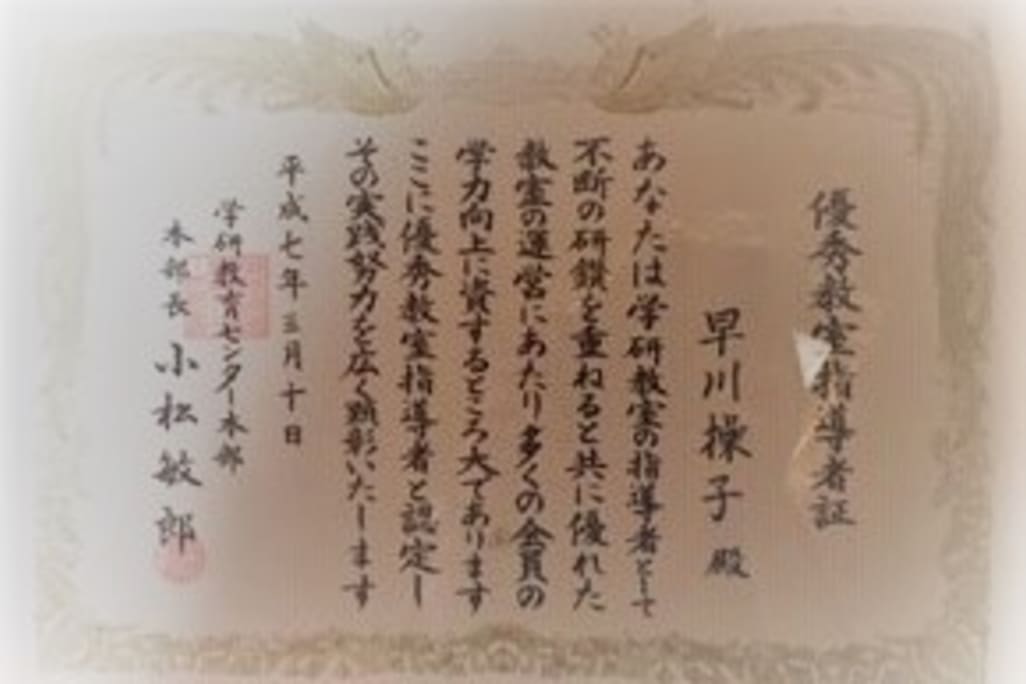 優秀教室指導者証
早川操子 殿
あなたは学研教室の指導者として
不断の研鑚を重ねると共に優れた
教室の運営にあたり多くの会員の
学力向上に資するところ大であります
ここに優秀教室指導者と認定し
その実践努力を広く顕彰いたします
平成七年三月十日
学研教育センター本部
本部長 小松敏郎